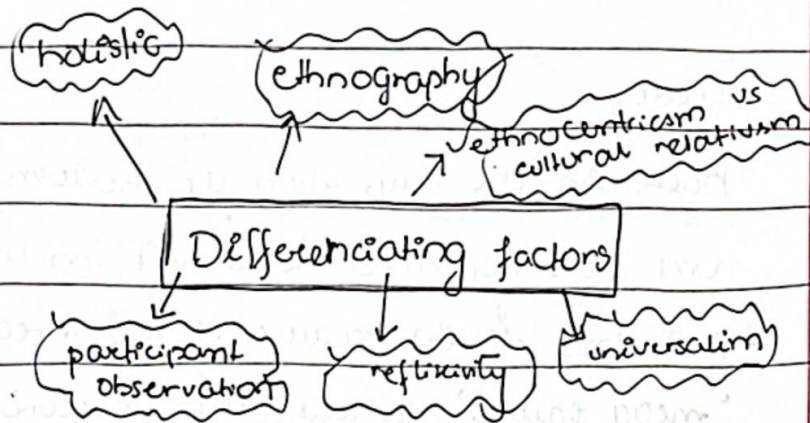 holistic
ethnography
ethnocentricsm vs
cultural relativsm
Differenciating factors
participant
observation
reflixivity
universalim